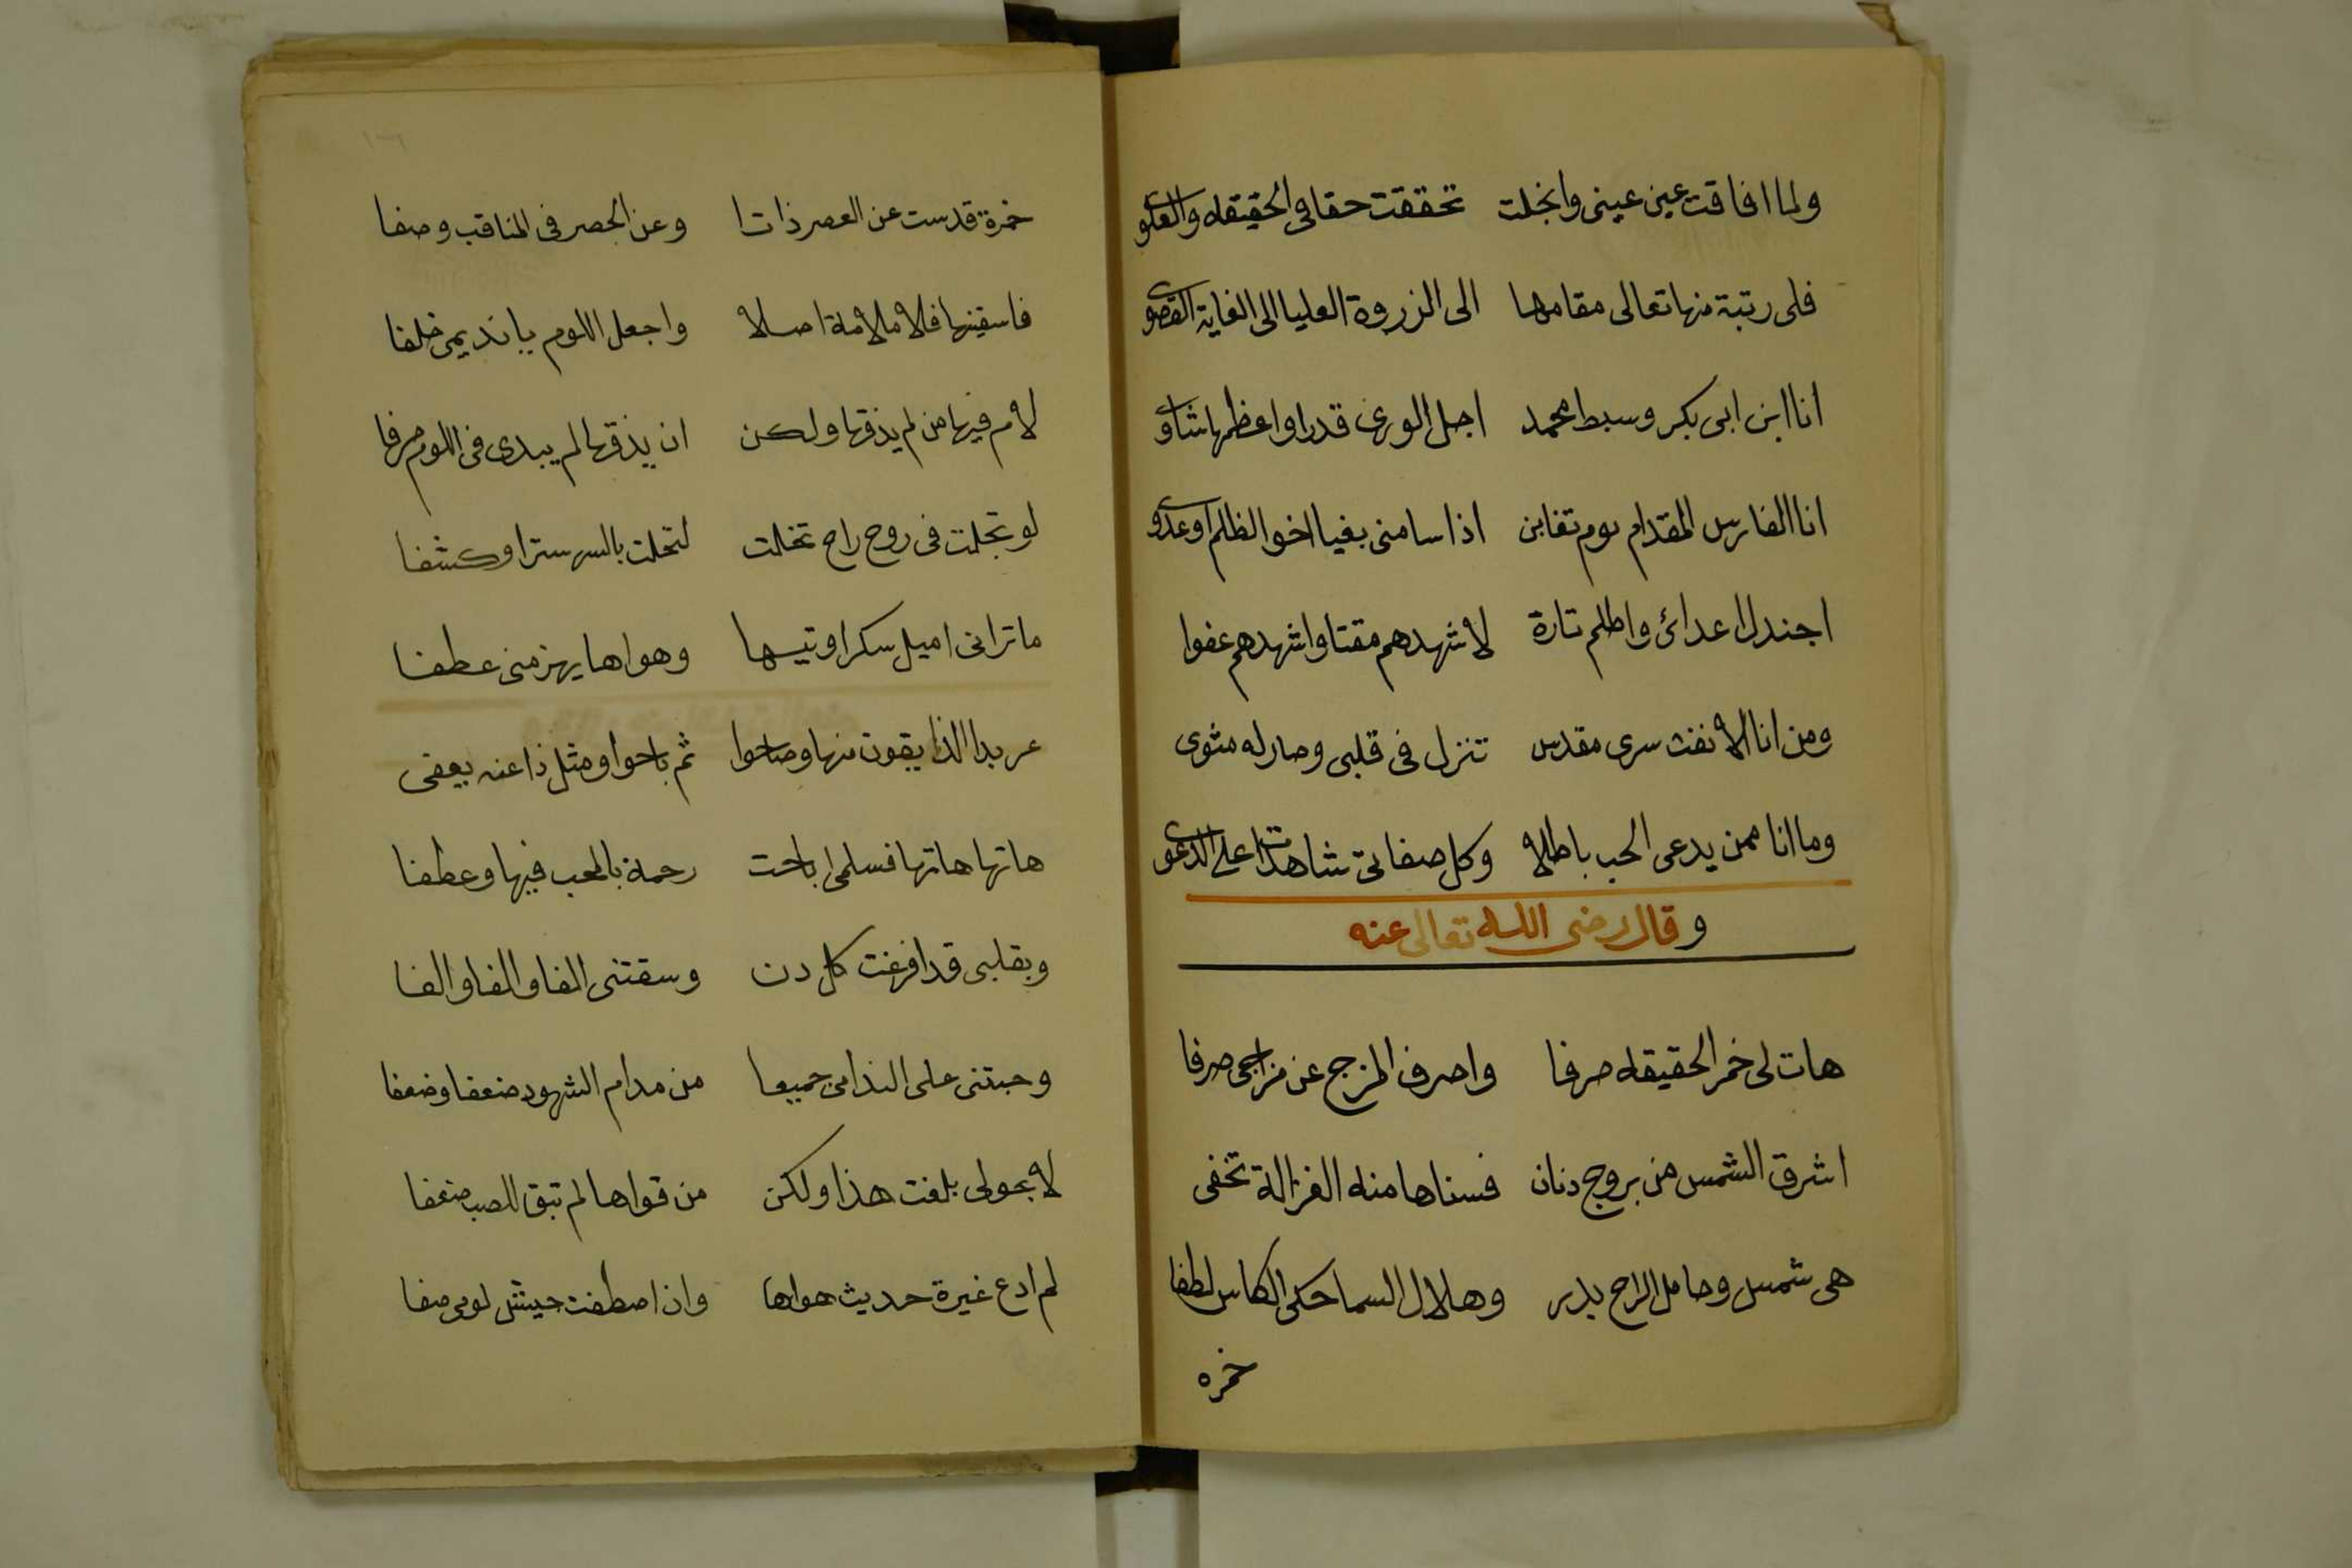 ولما افاقت عين عيني وانجلت تحققت حقا في الحقيقه والعلوى
فلى رتبة منها تعالى مقامها الى الزروة العليا الى الغاية القصوى
انا ابن ابى بكر وسبط محمد اجل الورى قدرا واعظمها شاوى
انا الفارس المقدام يوم تغابن اذا سامنى بغيا اخو الظلم او عدوى
اجندل اعدائ واظلم تارة لاشهدهم مقتا واشهدهم عفوا
ومن انا الا نفث سرى مقدس تنزل فى قلبى وصار له مثوى
وما انا ممن يدعى الحب باطلا وكل صفاتى شاهدات على الدعوى
وقال رضى الله تعالى عنه
هات لى خمر الحقيقه صرفا واصرف المزج عن مزاجى صرفا
اشرق الشمس من بروج دنان فسناها منه الغزالة تخفى
هى شمس وحامل الراح بدر وهلال السما حكى الكاس لطفا
خمره
١٦٦
خمرة قدست عن العصر ذاتا وعن الحصر فى المناقب وصفا
فاسقينها فلا ملامة اصلا واجعل اللوم يا نديمى خلفا
لام فيها من لم يذقها ولكن ان يذقها لم يبدى فى اللوم حرفا
لو تجلت فى روح راح تخلت لتحلت بالسر سترا وكشفا
ما ترانى اميل سكرا وتيها وهواها يهز منى عطفا
عربدا الذايقون منها وصاحوا ثم باحوا ومثل ذا عنه يعفى
هاتها هاتها فسلمى اباحت رحمة بالمحب فيها وعطفا
وبقلبى قد افرغت كل دن وسقتنى الفا والفا والفا
وحبتنى على الندامى جميعا من مدام الشهود ضعفا وضعفا
لا بحولى بلغت هذا ولكن من قواها لم تبق للصب ضعفا
لم ادع غيرة حديث هواها وان اصطفت جيش لومى صفا